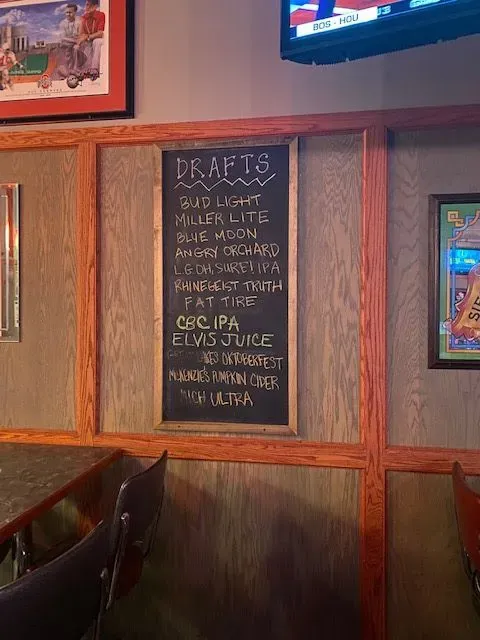 BOS - HOU
DRAFTS
BUD LIGHT
MILLER LITE
BLUE MOON
ANGRY ORCHARD
L.G. OH, SURE! IPA
RHINEGEIST TRUTH
FAT TIRE
CBC IPA
ELVIS JUICE
LAKES OKTOBERFEST
MCKENZIE'S PUMPKIN CIDER
MICH ULTRA